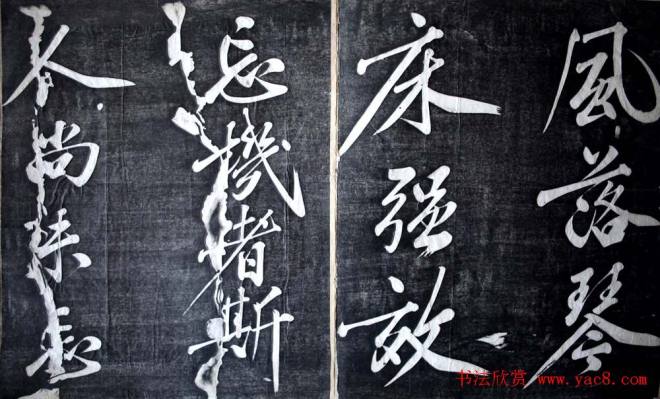 風落琴
床强效
忘機者斯
人尚
书法欣赏 www.yac8.com